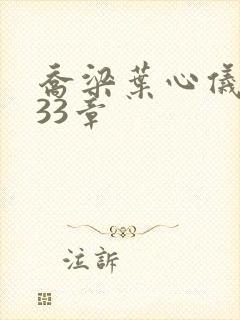 喬梁葉心儀
33章
注訴